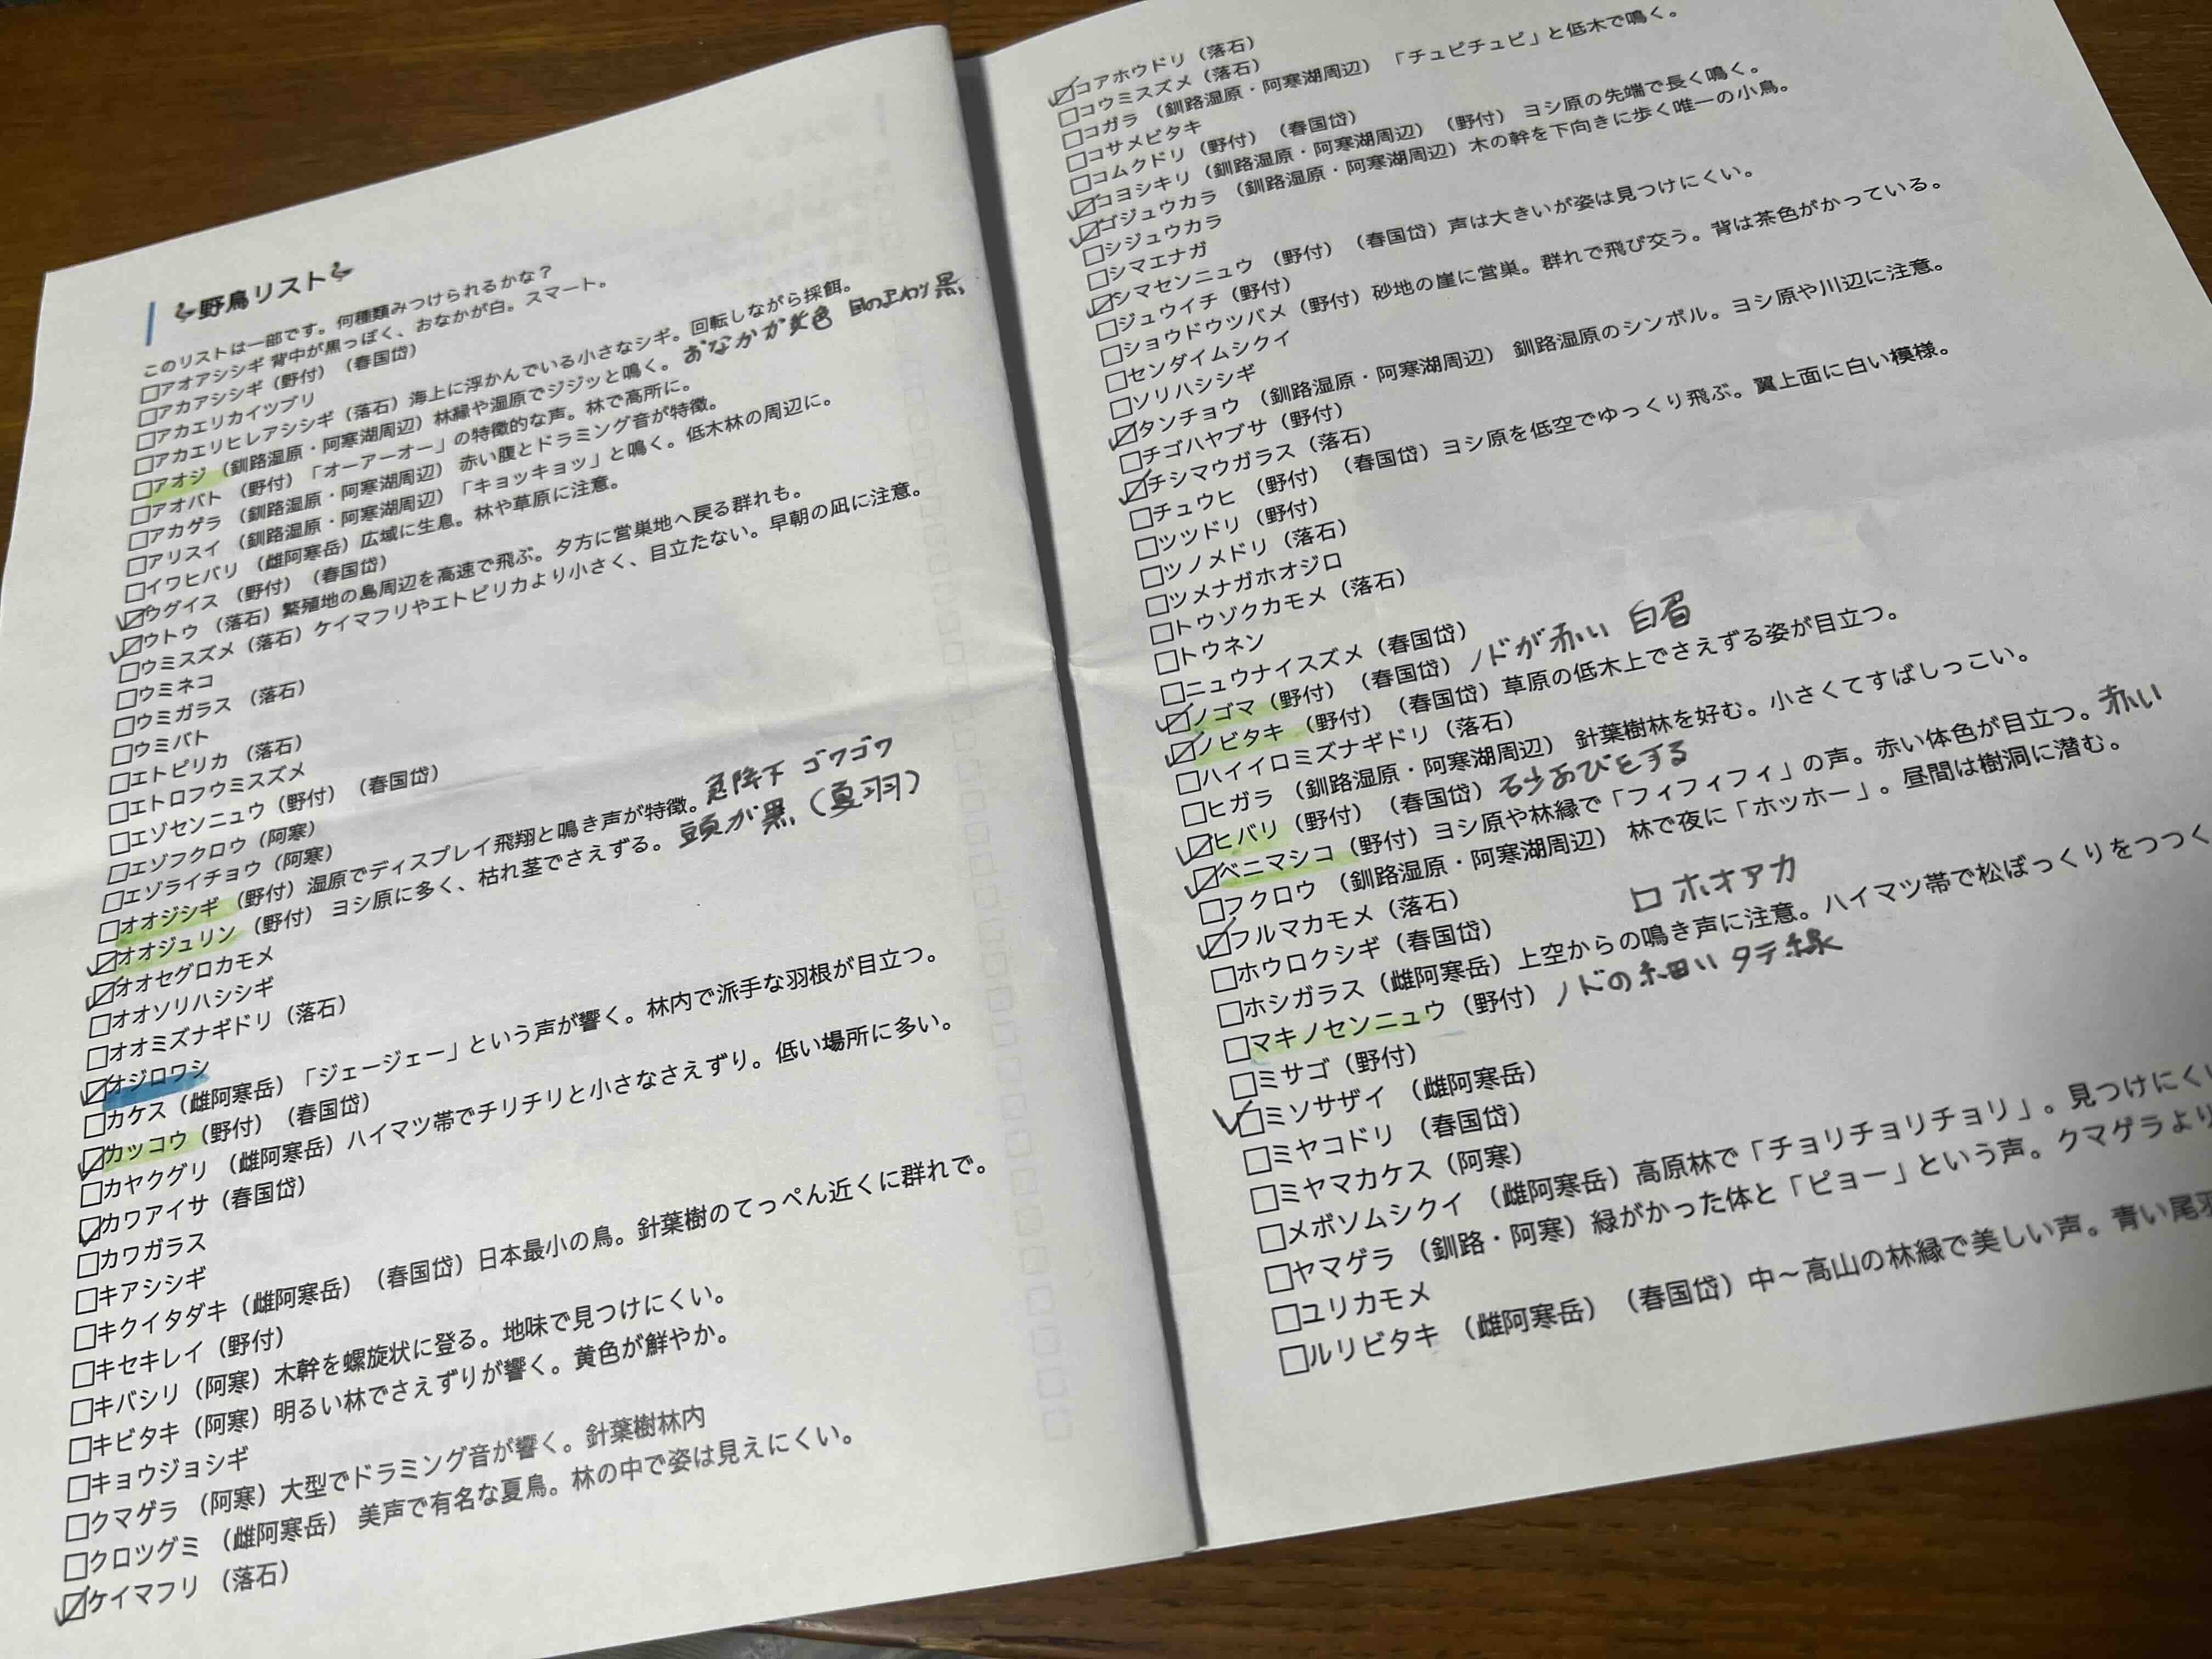 野鳥リスト
このリストは一部です。何種類みつけられるかな？
□アオアシシギ 背中が黒っぽく、おなかが白。スマート。
□アカアシシギ（野付）（春国岱）
□アカエリカイツブリ
□アカエリヒレアシシギ（落石）海上に浮かんでいる小さなシギ。回転しながら採餌。
□アオジ（釧路湿原・阿寒湖周辺）林縁や湿原でジジッと鳴く。おなかが黄色 目のまわり黒
□アオバト（野付）「オーアーオー」の特徴的な声。林で高所に。
□アカゲラ（釧路湿原・阿寒湖周辺）赤い腹とドラミング音が特徴。
□アリスイ（釧路湿原・阿寒湖周辺）「キョッキョッ」と鳴く。低木林の周辺に。
□イワヒバリ（雌阿寒岳）広域に生息。林や草原に注意。
☑ウグイス（野付）（春国岱）
☑ウトウ（落石）繁殖地の島周辺を高速で飛ぶ。夕方に営巣地へ戻る群れも。
□ウミスズメ（落石）ケイマフリやエトピリカより小さく、目立たない。早朝の凪に注意。
□ウミネコ
□ウミガラス（落石）
□ウミバト
□エトピリカ（落石）
□エトロフウミスズメ
□エゾセンニュウ（野付）（春国岱）
□エゾフクロウ（阿寒）
□エゾライチョウ（阿寒）
□オオジシギ（野付）湿原でディスプレイ飛翔と鳴き声が特徴。急降下 ゴワゴワ
☑オオジュリン（野付）ヨシ原に多く、枯れ茎でさえずる。頭が黒（夏羽）
☑オオセグロカモメ
□オオソリハシシギ
□オオミズナギドリ（落石）
☑オジロワシ
□カケス（雌阿寒岳）「ジェージェー」という声が響く。林内で派手な羽根が目立つ。
☑カッコウ（野付）（春国岱）
□カヤクグリ（雌阿寒岳）ハイマツ帯でチリチリと小さなさえずり。低い場所に多い。
☑カワアイサ（春国岱）
□カワガラス
□キアシシギ
□キクイタダキ（雌阿寒岳）（春国岱）日本最小の鳥。針葉樹のてっぺん近くに群れで。
□キセキレイ（野付）
□キバシリ（阿寒）木幹を螺旋状に登る。地味で見つけにくい。
□キビタキ（阿寒）明るい林でさえずりが響く。黄色が鮮やか。
□キョウジョシギ
□クマゲラ（阿寒）大型でドラミング音が響く。針葉樹林内
□クロツグミ（雌阿寒岳）美声で有名な夏鳥。林の中で姿は見えにくい。
☑ケイマフリ（落石）
☑コアホウドリ（落石）
□コウミスズメ（落石）
□コガラ（釧路湿原・阿寒湖周辺）「チュピチュピ」と低木で鳴く。
□コサメビタキ
□コムクドリ（野付）（春国岱）
☑コヨシキリ（釧路湿原・阿寒湖周辺）（野付）ヨシ原の先端で長く鳴く。
☑ゴジュウカラ（釧路湿原・阿寒湖周辺）木の幹を下向きに歩く唯一の小鳥。
□シジュウカラ
□シマエナガ
☑シマセンニュウ（野付）（春国岱）声は大きいが姿は見つけにくい。
□ジュウイチ（野付）
□ショウドウツバメ（野付）砂地の崖に営巣。群れで飛び交う。背は茶色がかっている。
□センダイムシクイ
□ソリハシシギ
☑タンチョウ（釧路湿原・阿寒湖周辺）釧路湿原のシンボル。ヨシ原や川辺に注意。
□チゴハヤブサ（野付）
☑チシマウガラス（落石）
□チュウヒ（野付）（春国岱）ヨシ原を低空でゆっくり飛ぶ。翼上面に白い模様。
□ツツドリ（野付）
□ツノメドリ（落石）
□ツメナガホオジロ
□トウゾクカモメ（落石）
□トウネン
□ニュウナイスズメ（春国岱）
☑ノゴマ（野付）（春国岱）ノドが赤い 白眉
☑ノビタキ（野付）（春国岱）草原の低木上でさえずる姿が目立つ。
□ハイイロミズナギドリ（落石）
□ヒガラ（釧路湿原・阿寒湖周辺）針葉樹林を好む。小さくてすばしっこい。
☑ヒバリ（野付）（春国岱）砂あびをする
☑ベニマシコ（野付）ヨシ原や林縁で「フィフィフィ」の声。赤い体色が目立つ。赤い
□フクロウ（釧路湿原・阿寒湖周辺）林で夜に「ホッホー」。昼間は樹洞に潜む。
☑フルマカモメ（落石）
□ホウロクシギ（春国岱）
□ホオアカ
□ホシガラス（雌阿寒岳）上空からの鳴き声に注意。ハイマツ帯で松ぼっくりをつつく
□マキノセンニュウ（野付）ノドの細い タテ線
□ミサゴ（野付）
☑ミソサザイ（雌阿寒岳）
□ミヤコドリ（春国岱）
□ミヤマカケス（阿寒）
□メボソムシクイ（雌阿寒岳）高原林で「チョリチョリチョリ」。見つけにくい
□ヤマゲラ（釧路・阿寒）緑がかった体と「ピョー」という声。クマゲラより
□ユリカモメ
□ルリビタキ（雌阿寒岳）（春国岱）中～高山の林縁で美しい声。青い尾羽